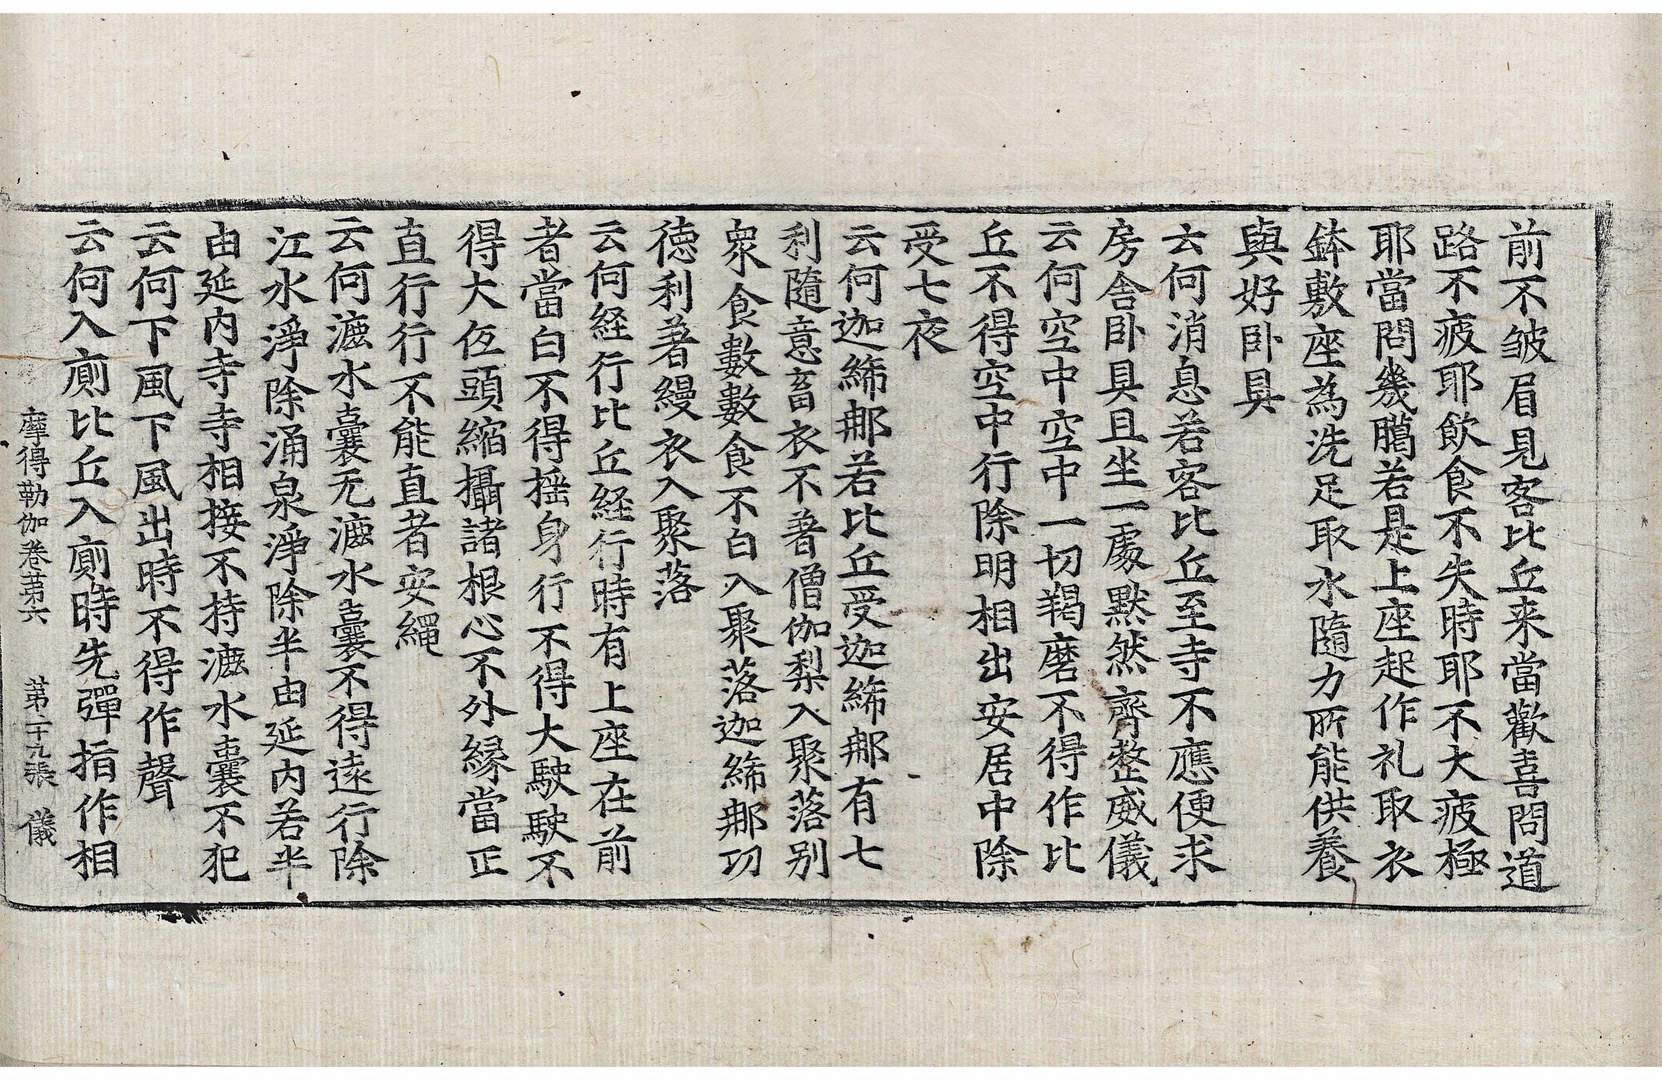 前不皱眉見客比丘来當歡喜問道
路不疲耶飲食不失時耶不大疲極
耶當問幾臈若是上座起作礼取衣
鉢敷座為洗足取水隨力所能供養
與好卧具
云何消息若客比丘至寺不應便求
房舍卧具且坐一處默然齊整威儀
云何空中空中一切羯磨不得作比
丘不得空中行除明相出安居中除
受七夜
云何迦絺那若比丘受迦絺那有七
利隨意畜衣不著僧伽梨入聚落别
衆食數數食不白入聚落迦絺那功
德利著縵衣入聚落
云何経行比丘経行時有上座在前
者當白不得摇身行不得大駛駛不
得大伍頭縮攝諸根心不外緣當正
直行行不能直者安繩
云何漉水囊无漉水囊不得遠行除
江水淨除涌泉淨除半由延內若半
由延內寺寺相接不持漉水囊不犯
云何下風下風出時不得作聲
云何入廁比丘入廁時先彈指作相
摩得勒伽卷第六 第二十九張 儀